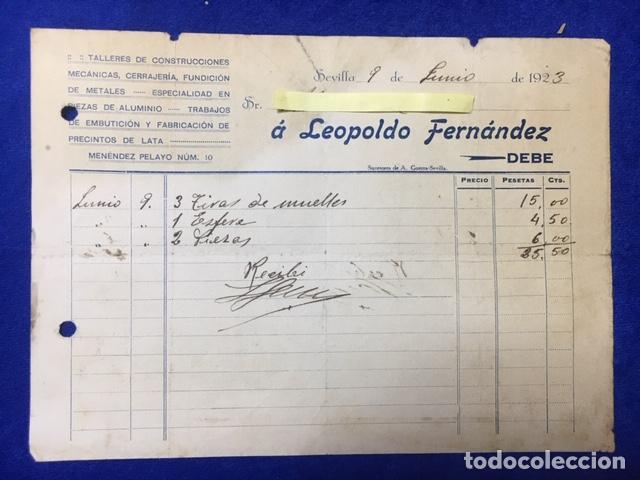 TALLERES DE CONSTRUCCIONES
MECÁNICAS, CERRAJERÍA, FUNDICIÓN
DE METALES — ESPECIALIDAD EN
PIEZAS DE ALUMINIO — TRABAJOS
DE EMBUTICIÓN Y FABRICACIÓN DE
PRECINTOS DE LATA
MENÉNDEZ PELAYO NÚM. 10
Sevilla 9 de Junio de 1923
Sr.
á Leopoldo Fernández
DEBE
Sucesores de A. Gomra-Sevilla.
PRECIO PESETAS CTS.
Junio 9. 3 Tiras de muelles 15,00
" " 1 Esfera 4,50
" " 2 Piezas 6,00
25,50
Recibí
todocoleccion.net